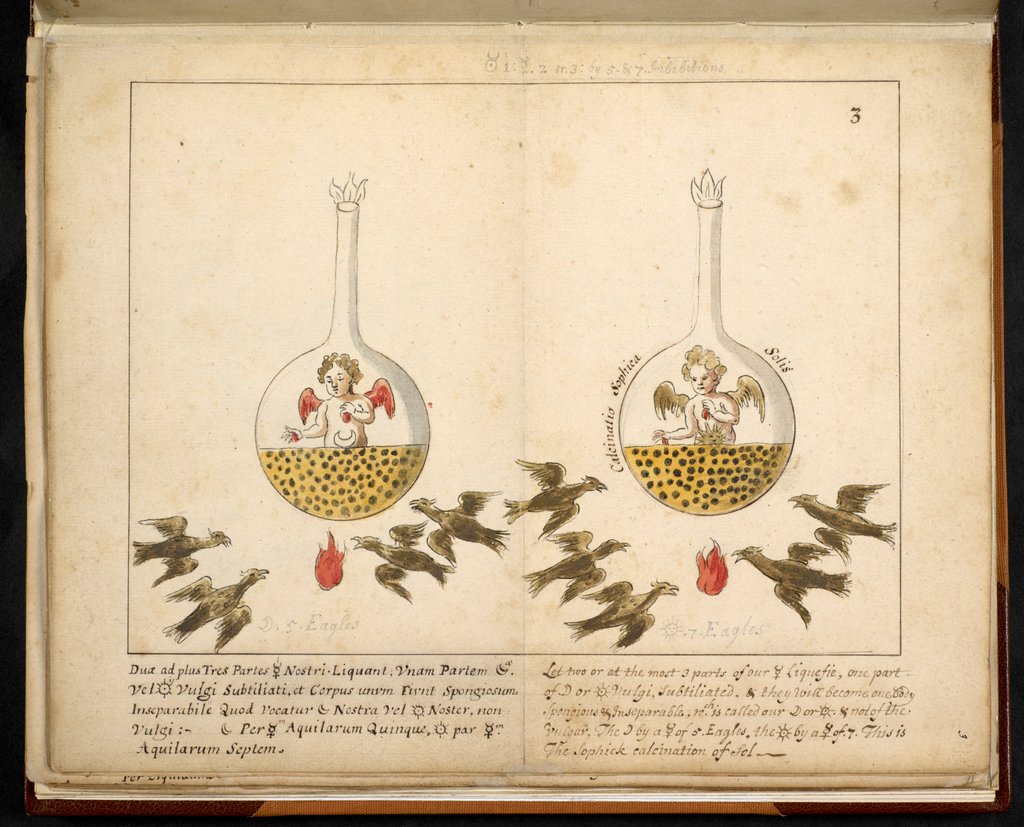 ☿ 1: ☿. 2 or 3: by 5 & 7. Imbibitions
3
Calcinatio Sophica Solis
☽. 5. Eagles
☼. 7. Eagles
Duæ ad plus Tres Partes ☿ Nostri Liquant, Vnam Partem ☾.
Vel ☼ Vulgi Subtiliati, et Corpus unum Fiunt Spongiosum
Inseparabile Quod Vocatur ☾ Nostra Vel ☼ Noster, non
Vulgi :- ☾ Per ☿m Aquilarum Quinque, ☼ par ☿m
Aquilarum Septem.
Let two or at the most 3 parts of our ☿ Liquefie, one part
of ☽ or ☼ Vulgi, Subtiliated, & they will become one Body
Spongious & Inseparable, wch is called our ☽ or ☼, & not of the
Vulgar, The ☽ by a ☿ of 5. Eagles, the ☼ by a ☿ of 7. This is
The Sophick calcination of Sol